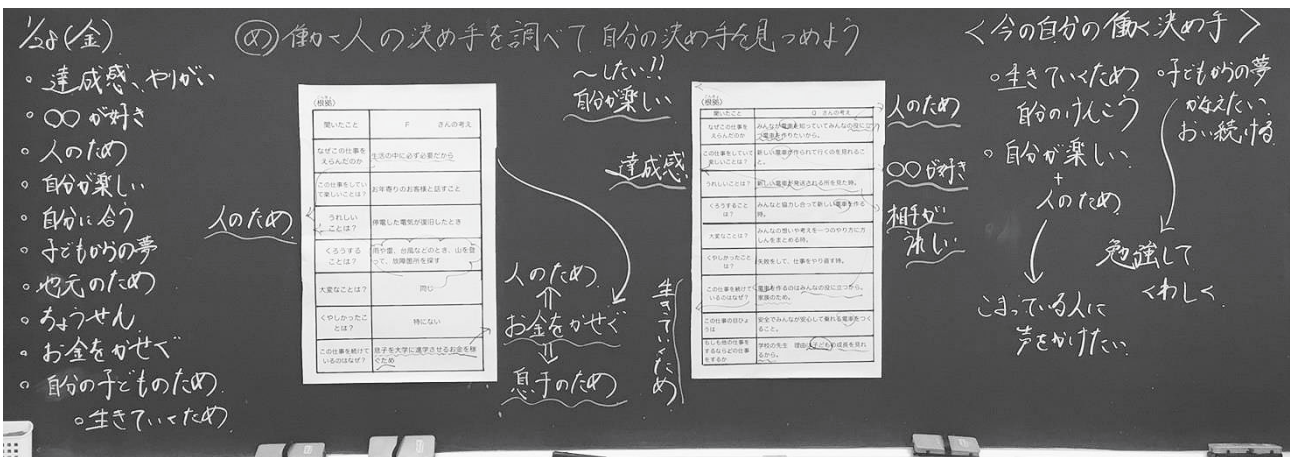 1/28(金)
め 働く人の決め手を調べて 自分の決め手を見つめよう
。達成感、やりがい
。〇〇が好き
。人のため
。自分が楽しい
。自分に合う
。子どもからの夢
。地元のため
。ちょうせん
。お金をかせぐ
。自分の子どものため
。生きていくため
人のため
(根拠)
聞いたこと F さんの考え
なぜこの仕事を
えらんだのか
生活の中に必ず必要だから
この仕事をしてい
て楽しいことは?
お年寄りのお客様と話すこと
うれしい
ことは?
停電した電気が復旧したとき
くろうする
ことは?
雨や雷、台風などのとき、山を登
って、故障箇所を探す
大変なことは? 同じ
くやしかったこ
とは?
特にない
この仕事を続けて
いるのはなぜ?
息子を大学に進学させるお金を稼
ぐため
人のため
お金をかせぐ
息子のため
~したい!!
自分が楽しい
達成感
生きていくため
(根拠)
聞いたこと O さんの考え
なぜこの仕事を
えらんだのか
みんなが電車を知っていてみんなの役に立
つ電車を作りたいから。
この仕事をしていて
楽しいことは?
新しい電車が作られて行くのを見れるこ
と。
うれしいことは?
新しい電車が発送される所を見た時。
くろうすること
は?
みんなと協力し合って新しい電車を作る
時。
大変なことは?
みんなの想いや考えを一つのやり方に方
しんをまとめる時。
くやしかったこと
は?
失敗をして、仕事をやり直す時。
この仕事を続けて
いるのはなぜ?
電車を作るのはみんなの役に立つから。
家族のため。
この仕事の目ひょ
うは
安全でみんなが安心して乗れる電車をつく
ること。
もしも他の仕事を
するならどの仕事
をするか
学校の先生 理由は子どもの成長を見れ
るから。
人のため
〇〇が好き
相手が
うれしい
<今の自分の働く決め手>
。生きていくため
自分のけんこう
。自分が楽しい
+
人のため
こまっている人に
声をかけたい
。子どもからの夢
かなえたい
おい続ける
勉強して
くわしく